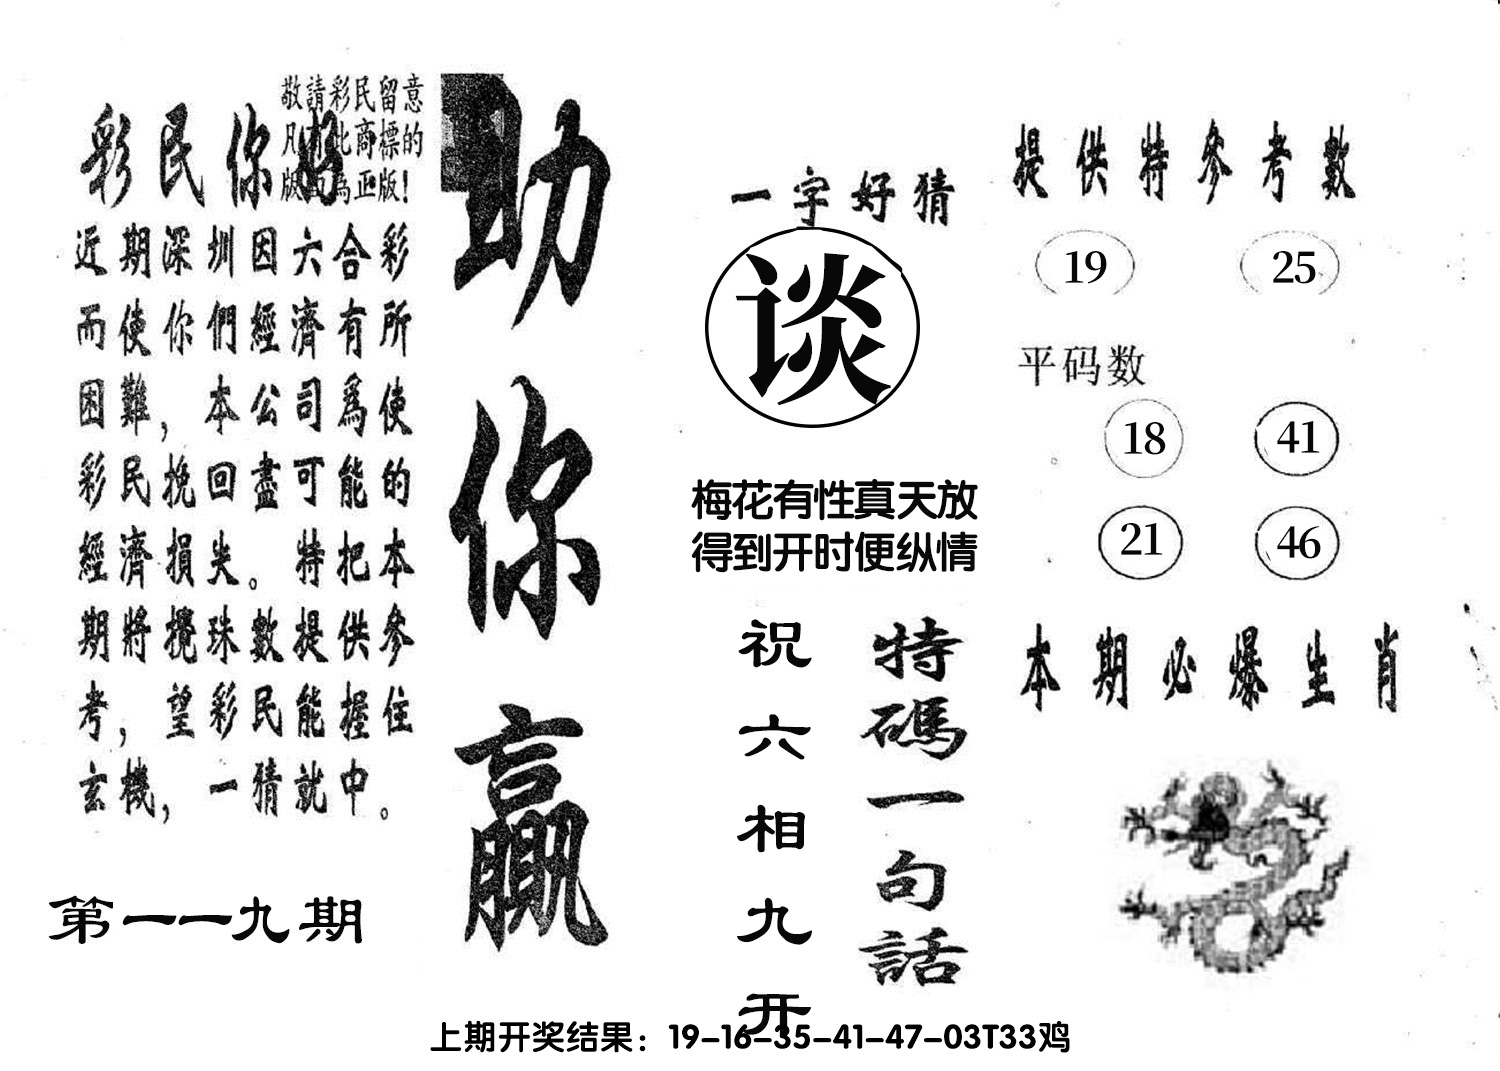 敬請彩民留意
凡有此商標的
版面為正版！
彩民你好
近期深圳因六合彩
而使你們經濟有所
困難，本公司爲使
彩民挽回盡可能的
經濟損失。特把本
期將攪珠數提供參
考，望彩民能握住
玄機，一猜就中。
第一一九期
助你贏
一字好猜
谈
梅花有性真天放
得到开时便纵情
特碼一句話
祝六相九开
提供特參考數
19 25
平码数
18 41
21 46
本期必爆生肖
上期开奖结果：19-16-35-41-47-03T33鸡